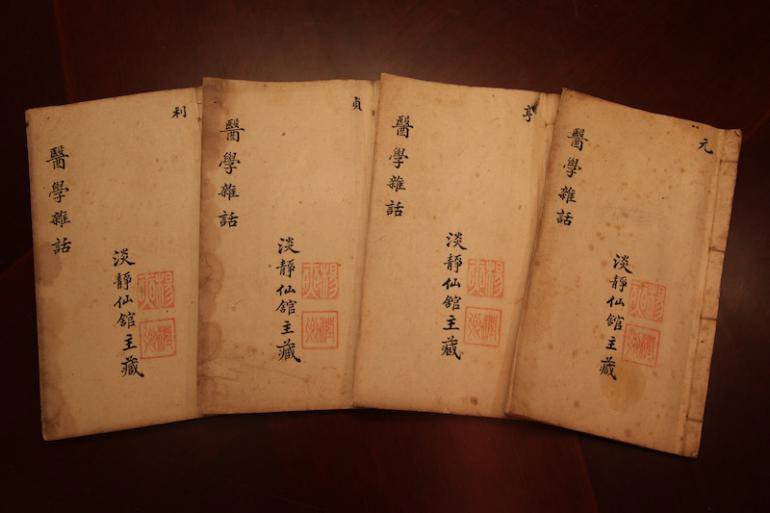 元
醫學雜話
淡靜仙舘主藏
亨
醫學雜話
淡靜仙舘主藏
貞
醫學雜話
淡靜仙舘主藏
利
醫學雜話
淡靜仙舘主藏